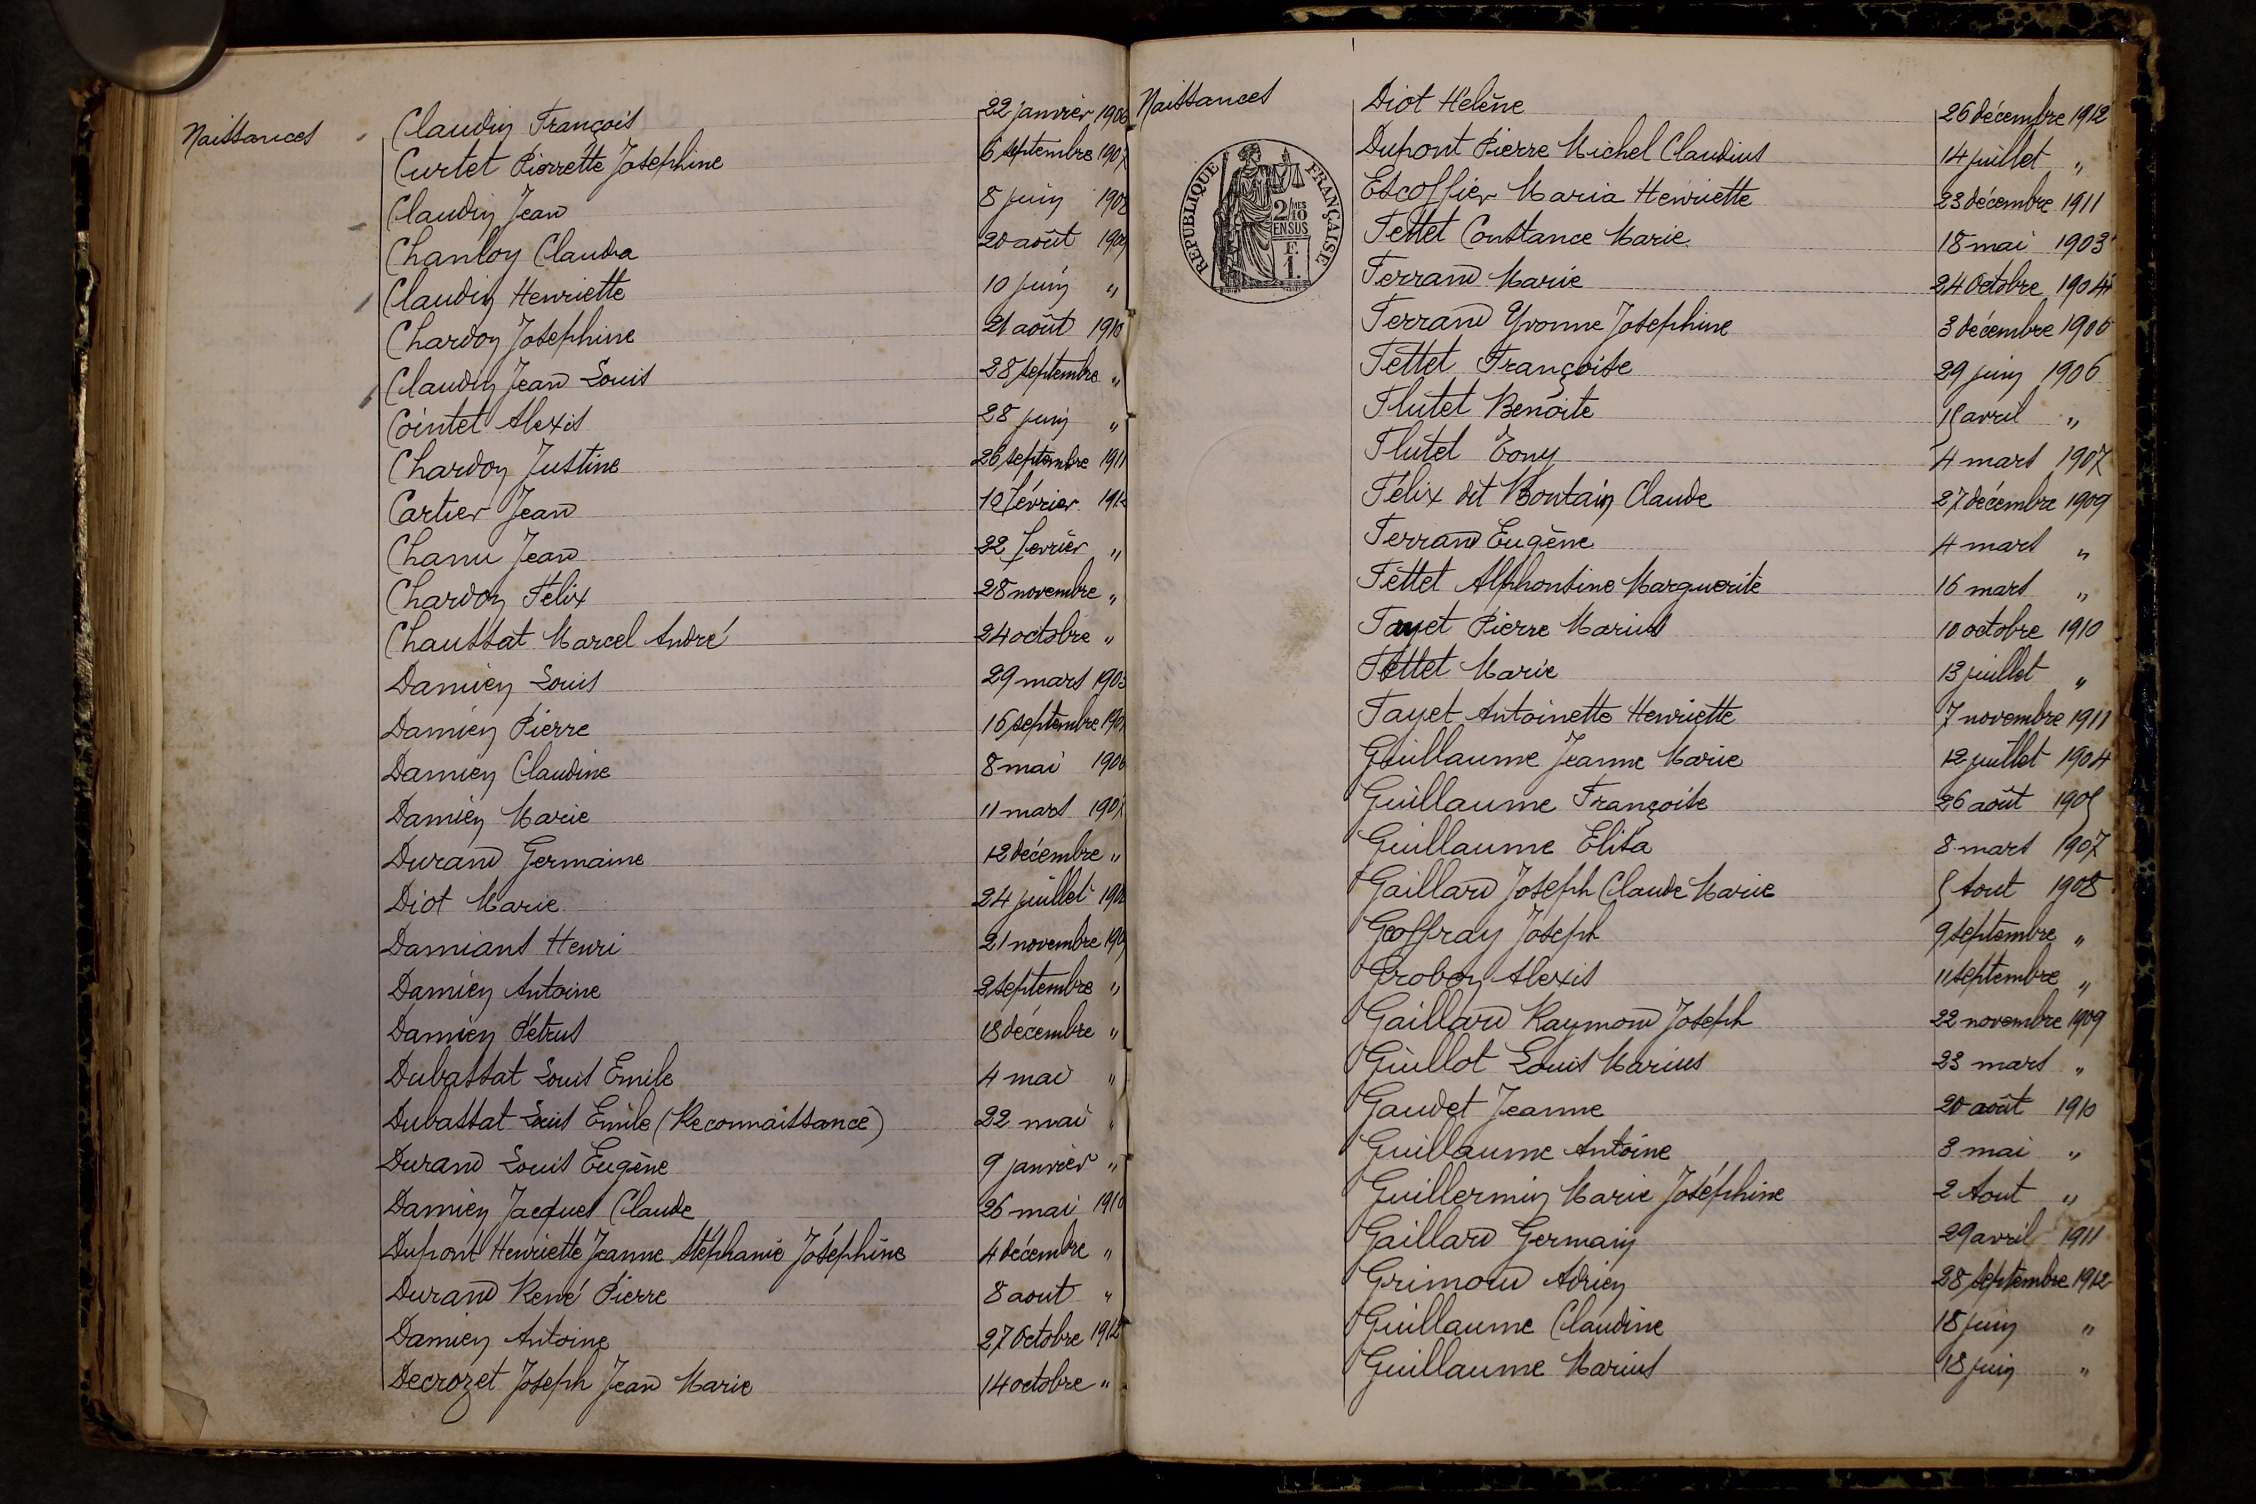 Naissances
Claudin François 22 janvier 1906
Curtet Pierrette Josephine 6 septembre 1907
Claudin Jean 8 juin 1908
Chanloy Claudia 20 août 1909
Claudin Henriette 10 juin "
Chardon Josephine 21 août 1910
Claudin Jean Louis 28 septembre "
Cointet Alexis 28 juin "
Chardon Justine 26 septembre 1911
Cartier Jean 10 février 1912
Chanu Jean 22 fevrier "
Chardon Félix 28 novembre "
Chaussat Marcel André 24 octobre "
Damien Louis 29 mars 1903
Damien Pierre 16 septembre
Damien Claudine 8 mai 1906
Damien Marie 11 mars 1907
Durand Germaine 12 décembre "
Diot Marie 24 juillet 1908
Damians Henri 21 novembre 1909
Damien Antoine 2 septembre "
Damien Pétrus 18 décembre "
Dubassat Louis Emile 4 mai "
Dubassat Louis Emile (Reconnaissance) 22 mai "
Durand Louis Eugène 9 janvier "
Damien Jacques Claude 26 mai 1910
Dupont Henriette Jeanne Stéphanie Joséphine 4 décembre "
Durand René Pierre 8 aout "
Damien Antoine 27 Octobre 1912
Decrozet Joseph Jean Marie 14 octobre "
Naissances
REPUBLIQUE FRANÇAISE
2/10 MES
EN SUS
F.
1.
Diot Hélène 26 décembre 1912
Dupont Pierre Michel Claudius 14 juillet "
Escoffier Maria Henriette 23 décembre 1911
Fettet Constance Marie 18 mai 1903
Ferrand Marie 24 Octobre 1904
Ferrand Yvonne Josephine 3 décembre 1905
Fettet Françoise 29 juin 1906
Flutet Benoite 15 avril "
Flutet Tony 4 mars 1907
Félix dit Montain Claude 27 décembre 1909
Ferrand Eugène 4 mars "
Fettet Alphonsine Marguerite 16 mars "
Fayet Pierre Marius 10 octobre 1910
Fettet Marie 13 juillet "
Fayet Antoinette Henriette 7 novembre 1911
Guillaume Jeanne Marie 12 juillet 1904
Guillaume Françoise 26 août 1905
Guillaume Elisa 8 mars 1907
Gaillard Joseph Claude Marie 5 Aout 1908
Geoffray Joseph 9 septembre "
Grobon Alexis 11 septembre "
Gaillard Raymond Joseph 22 novembre 1909
Guillot Louis Marius 23 mars "
Gaudet Jeanne 20 août 1910
Guillaume Antoine 8 mai "
Guillermin Marie Joséphine 2 Aout "
Gaillard Germain 29 avril 1911
Grimond Adrien 28 septembre 1912
Guillaume Claudine 18 juin "
Guillaume Marius 18 juin "